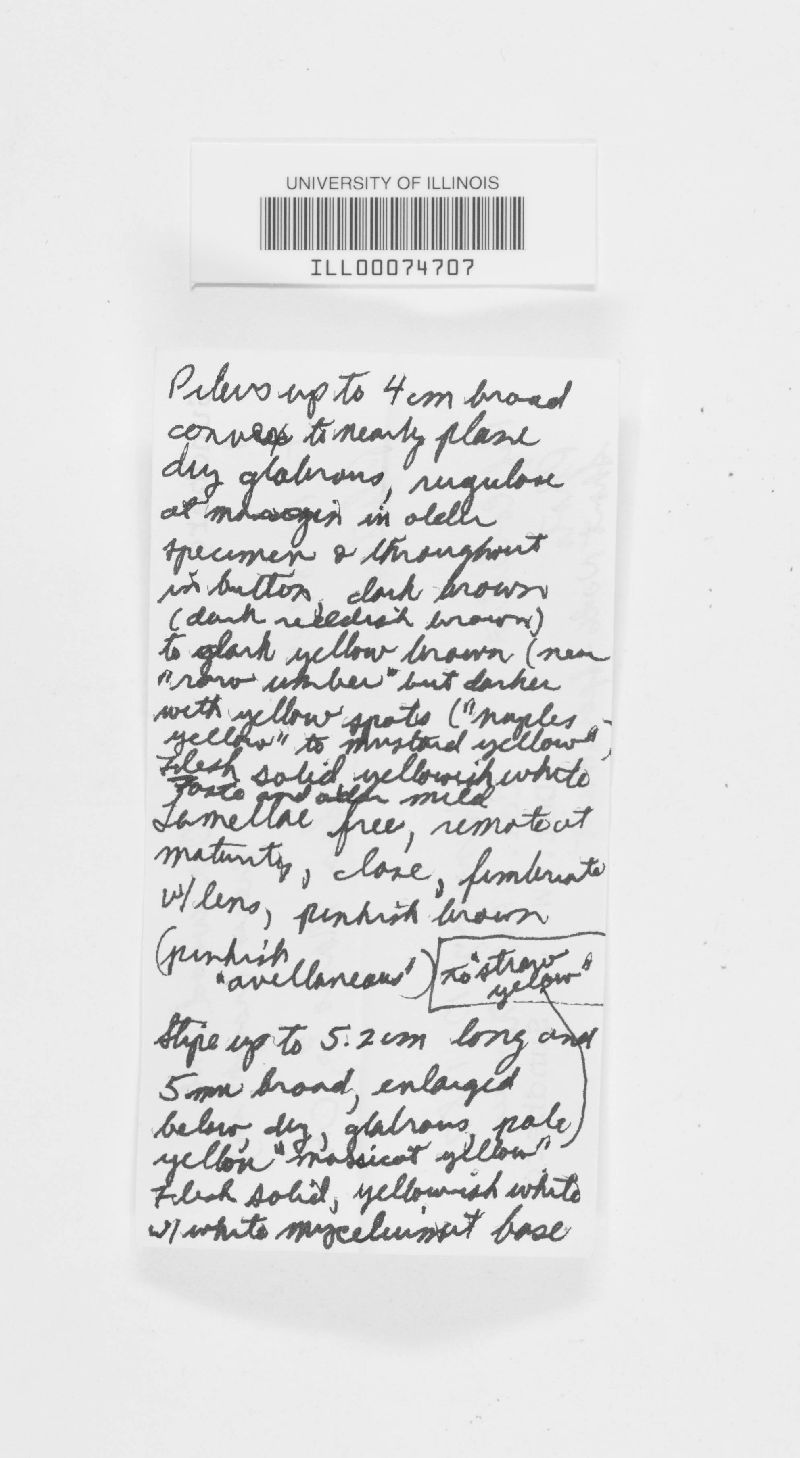 UNIVERSITY OF ILLINOIS
ILL00074707
Pileus up to 4 cm broad
convex to nearly plane
dry glabrous, rugulose
at margin in older
specimen & throughout
in button, dark brown
(dark reddish brown)
to dark yellow brown (near
"raw umber" but darker
with yellow spots ("naples
yellow" to mustard yellow",
Flesh solid yellowish white
Taste and odor mild
Lamellae free, remote at
maturity, close, fimbriate
w/ lens, pinkish brown
(pinkish
"avellaneous") to "straw
yellow"
Stipe up to 5.2 cm long and
5 mm broad, enlarged
below, dry, glabrous, pale
yellow "massicot yellow"
Flesh solid, yellowish white
w/ white mycelium at base